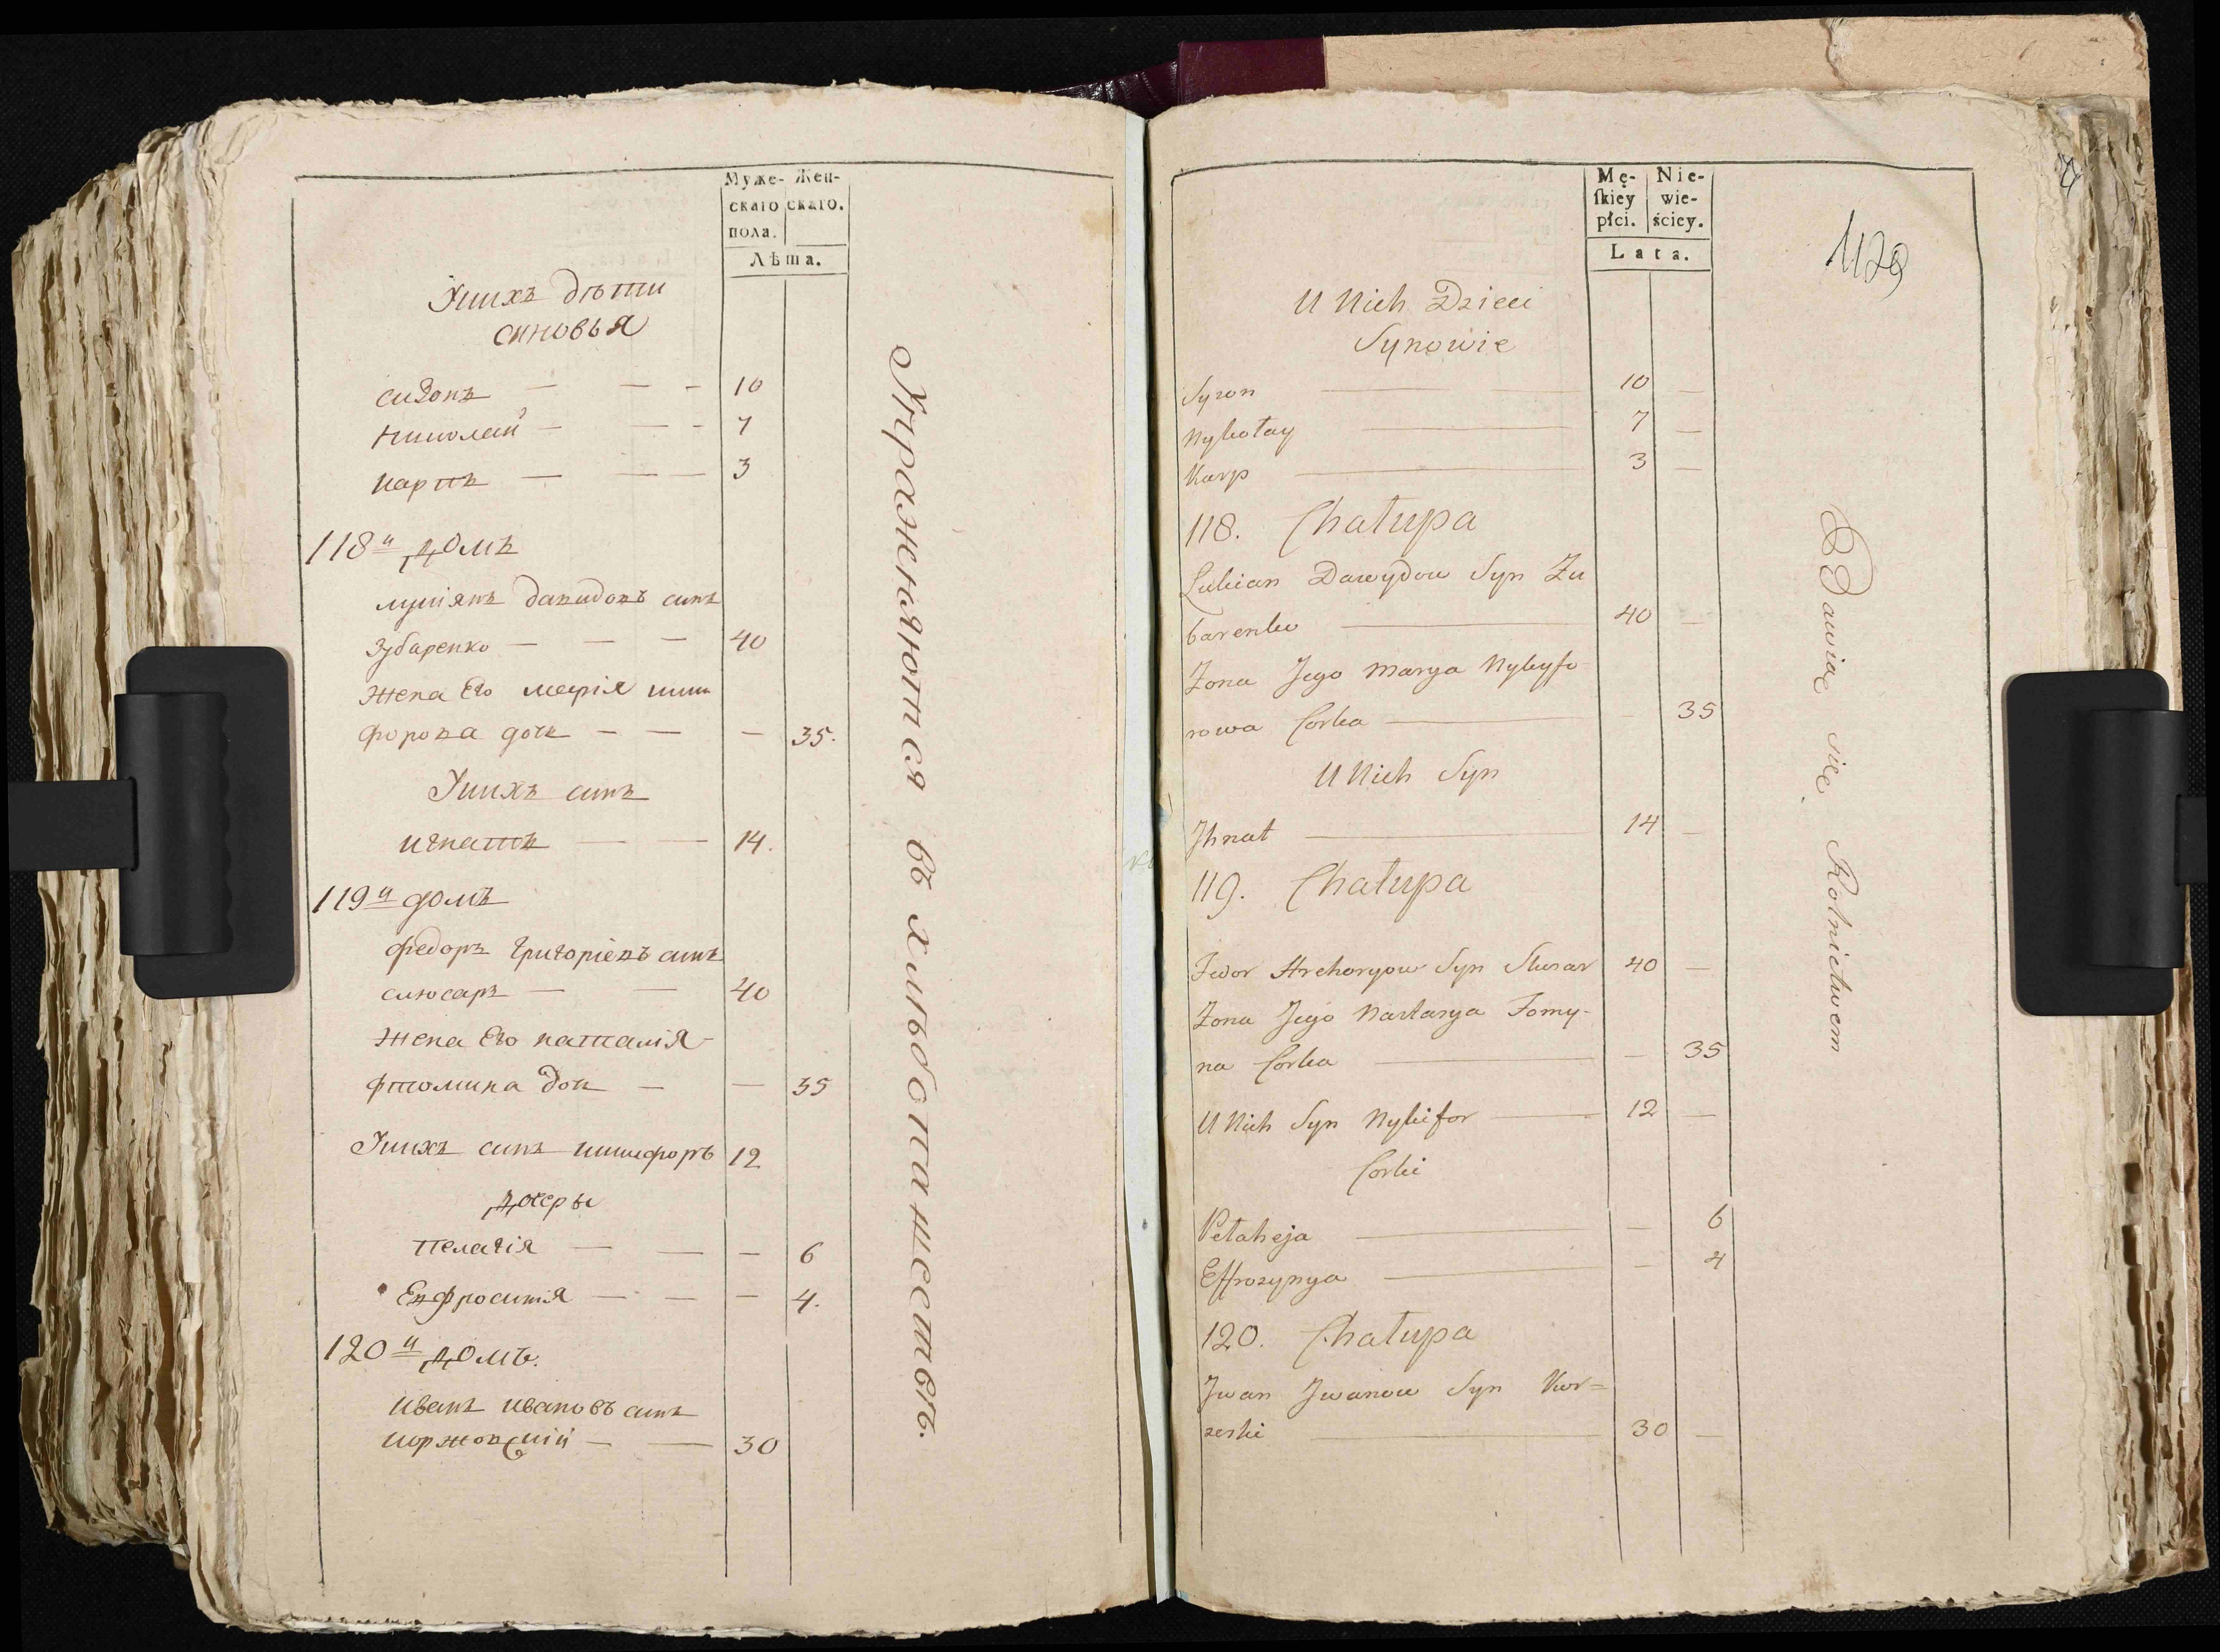 Муже- Жен-
скаго скаго.
пола.
Лѣта.
Унихъ дѣти
синовья
сидонъ — — - 10
николай — — - 7
карпъ — — — 3
118й домъ
лукіянъ давидовъ синъ
Зубаренко — — — 40
жена Его марія ники
форова дочь — — — 35.
Унихъ синъ
игнатъ — — 14.
119й домъ
федоръ григоріевъ синъ
слюсаръ — — 40
жена Его наталія
фтомина доч — — 35
Унихъ синъ никифоръ 12
дочеры
пелагія — — — 6
Евфросинія — — — 4.
120й домъ.
иванъ ивановъ синъ
коржовскій — — 30
Упражняются въ хлѣбопашествѣ.
Mę- Nie-
ſkiey wie-
płci. ściey.
Lata.
1129
U Nich Dzieci
Synowie
Syzon — 10 —
Nykołay — 7 —
Karp — 3 —
118. Chałupa
Łukian Dawydow Syn Zu
barenko — 40 —
Zona Jego Marya Nykyfo-
rowa Corka — — 35
U Nich Syn
Jhnat — 14 —
119. Chałupa
Fedor Hrehoryow Syn Slusar 40 —
Zona Jego Nastasya Fomy-
na Corka — — 35
U Nich Syn Nykifor — 12 —
Corki
Pełaheja — — 6
Effrozynya — — 4
120. Chałupa
Jwan Jwanow Syn Kor=
zeski — 30 —
Bawią się Rolnictwem